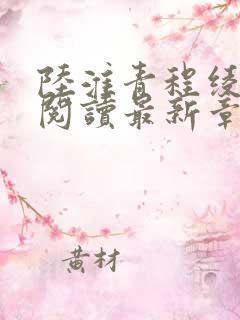 陸淮青程綾
閱讀最新章
黃材